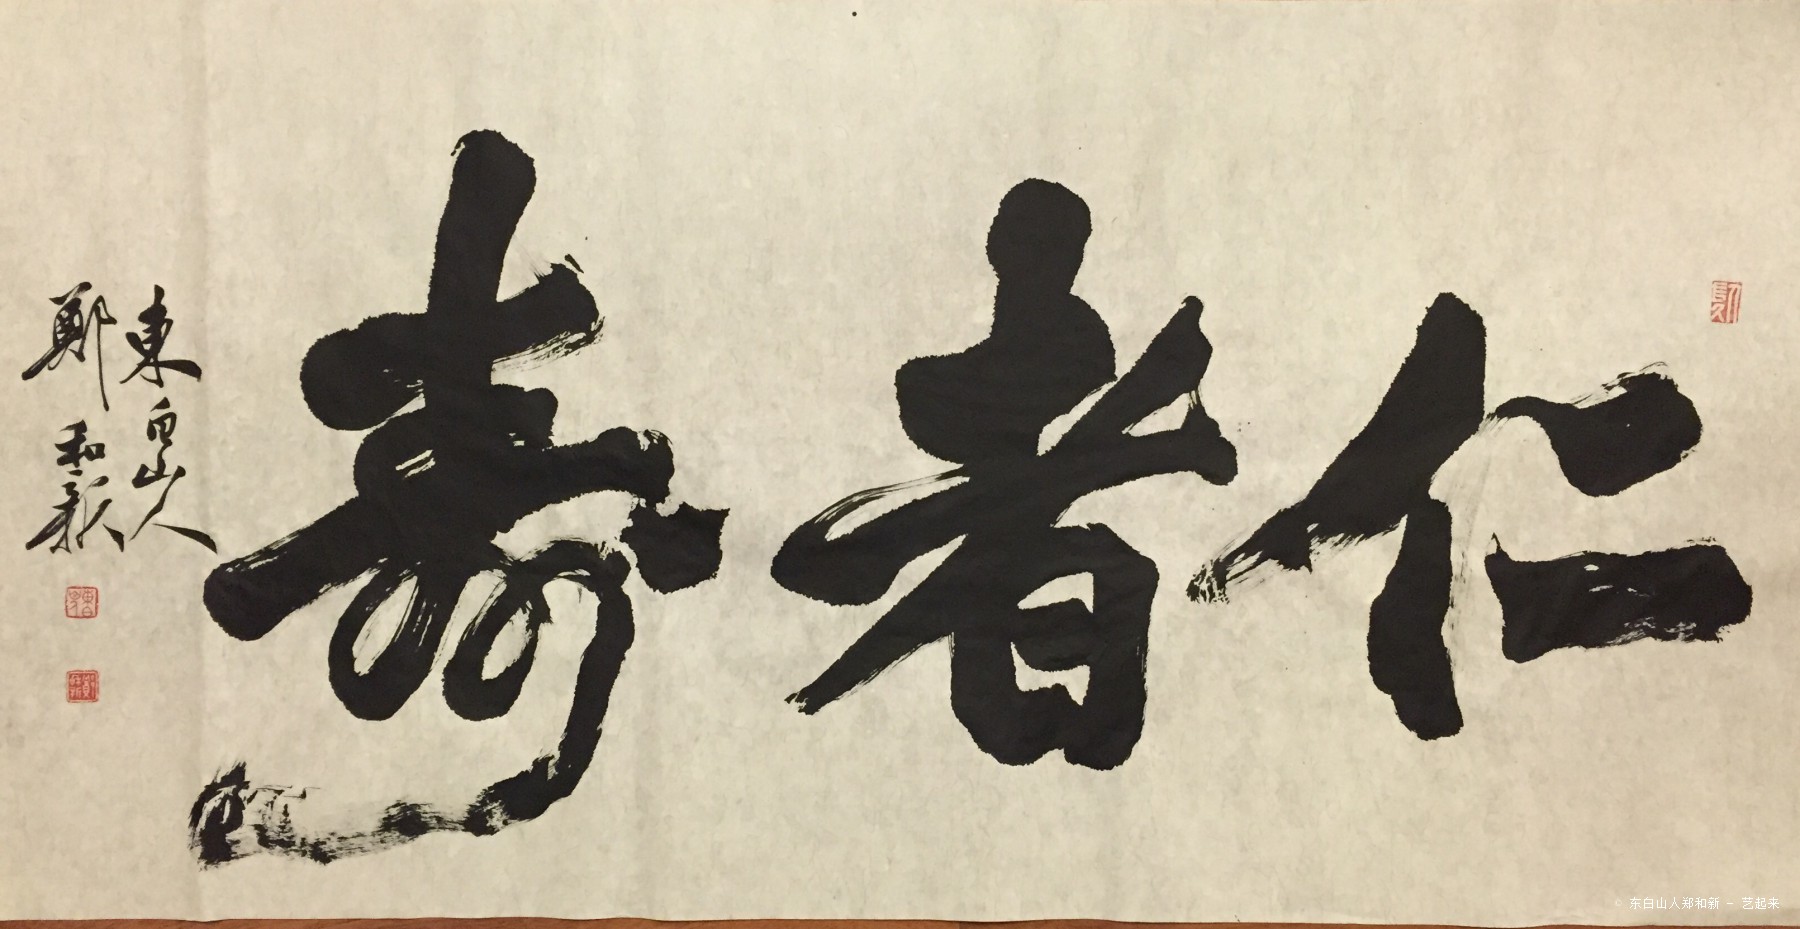 仁者寿
東白山人
鄭和新
東白
© 东白山人郑和新 - 艺起来